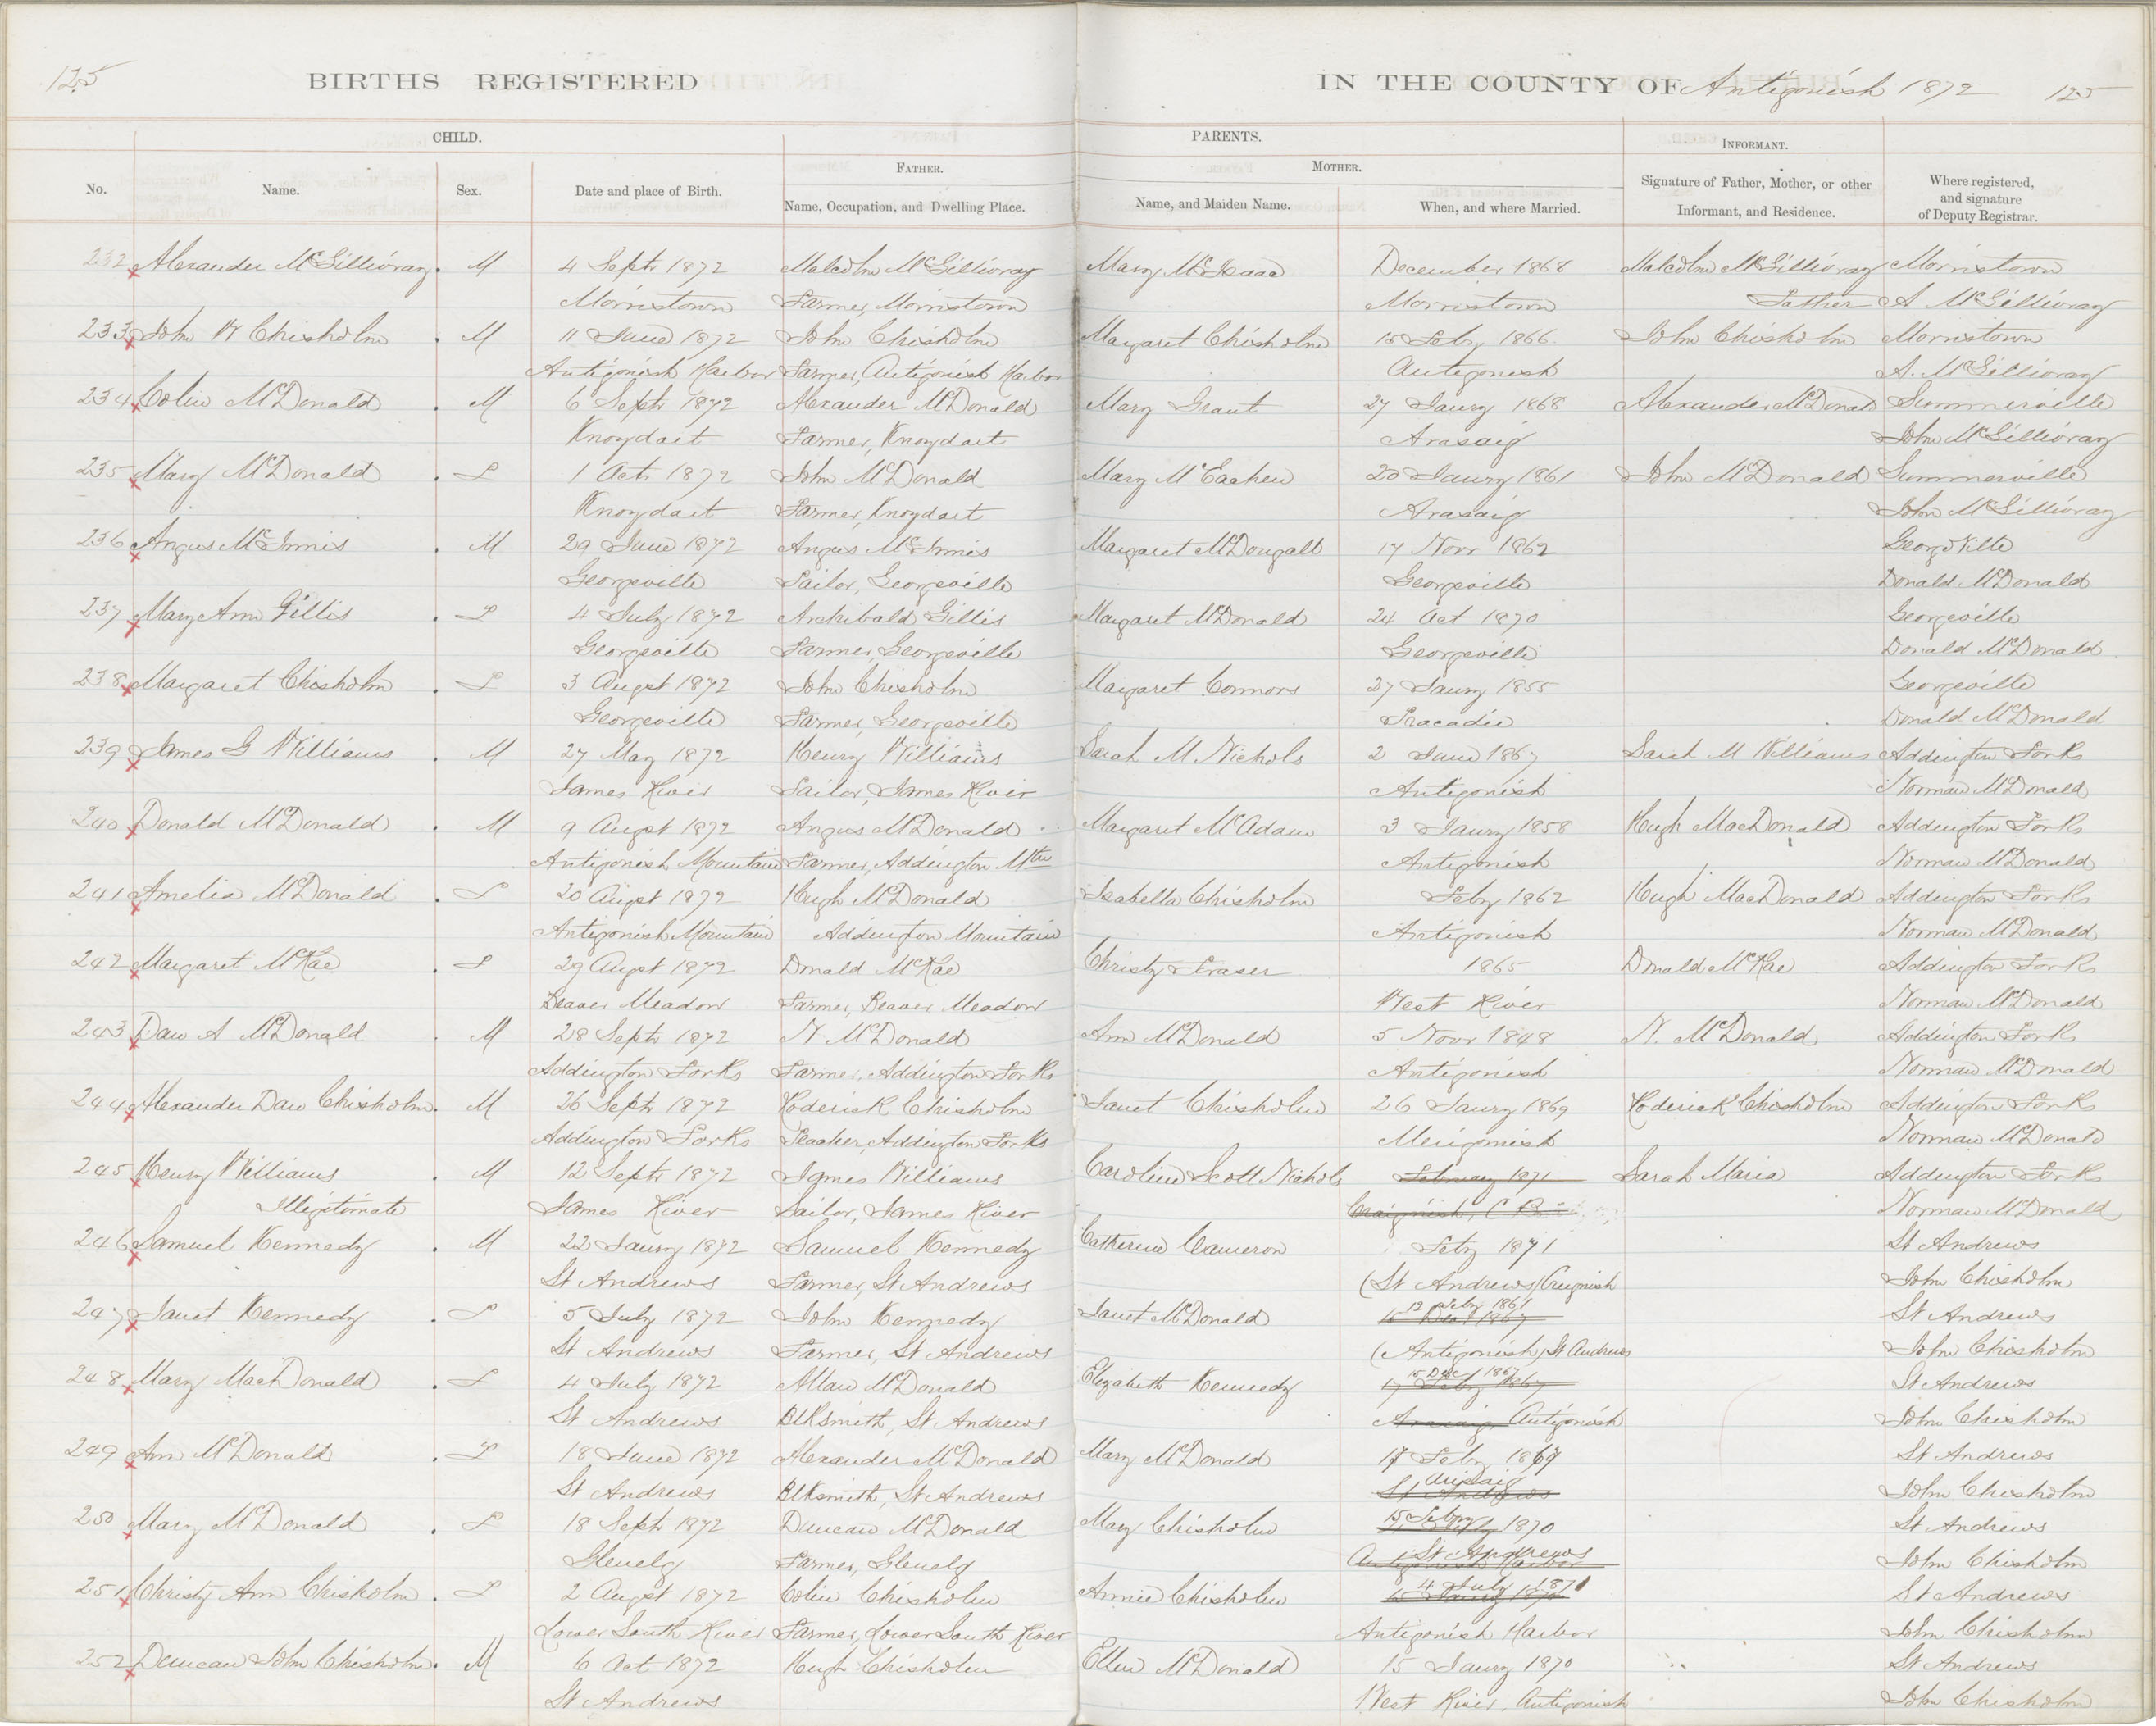 125
BIRTHS REGISTERED
IN THE COUNTY OF Antigonish 1872 125
CHILD.
PARENTS.
INFORMANT.
FATHER.
MOTHER.
No. Name. Sex. Date and place of Birth. Name, Occupation, and Dwelling Place. Name, and Maiden Name. When, and where Married. Signature of Father, Mother, or other Informant, and Residence. Where registered, and signature of Deputy Registrar.
232 Alexander McGillivray. M 4 Sept 1872 Malcolm McGillivray Mary McIsaac December 1868 Malcolm McGillivray Morristown
Morristown Farmer, Morristown Morristown Father A McGillivray
233 John W Chisholm . M 11 June 1872 John Chisholm Margaret Chisholm 15 Feby 1866 John Chisholm Morristown
Antigonish Harbor Farmer, Antigonish Harbor Antigonish A. McGillivray
234 Colin McDonald . M 6 Sept 1872 Alexander McDonald Mary Grant 27 Jaury 1868 Alexander McDonald Summerville
Knoydart Farmer, Knoydart Arasaig John McGillivray
235 Mary McDonald . F 1 Oct 1872 John McDonald Mary McEachen 20 Jaury 1861 John McDonald Summerville
Knoydart Farmer, Knoydart Arasaig John McGillivray
236 Angus McInnis . M 29 June 1872 Angus McInnis Margaret McDougall 17 Novr 1862 GeorgeVille
Georgeville Sailor, Georgeville Georgeville Donald McDonald
237 Mary Ann Gillis . F 4 July 1872 Archibald Gillis Margaret McDonald 24 Oct 1870 Georgeville
Georgeville Farmer, Georgeville Georgeville Donald McDonald
238 Margaret Chisholm . F 3 Augst 1872 John Chisholm Margaret Connors 27 Jaury 1855 Georgeville
Georgeville Farmer, Georgeville Tracadie Donald McDonald
239 James G Williams . M 27 May 1872 Henry Williams Sarah M Nichols 2 June 1867 Sarah M Williams Addington Forks
James River Sailor, James River Antigonish Norman McDonald
240 Donald McDonald . M 9 Augst 1872 Angus McDonald Margaret McAdam 3 Jaury 1858 Hugh MacDonald Addington Forks
Antigonish Mountain Farmer, Addington Mtn Antigonish Norman McDonald
241 Amelia McDonald . F 20 Augst 1872 Hugh McDonald Isabella Chisholm Feby 1862 Hugh MacDonald Addington Forks
Antigonish Mountain Addington Mountain Antigonish Norman McDonald
242 Margaret McRae . F 29 Augst 1872 Donald McRae Christy Fraser 1865 Donald McRae Addington Forks
Beaver Meadow Farmer, Beaver Meadow West River Norman McDonald
243 Daw A McDonald . M 28 Sept 1872 N McDonald Ann McDonald 5 Novr 1848 N. McDonald Addington Forks
Addington Forks Farmer, Addington Forks Antigonish Norman McDonald
244 Alexander Daw Chisholm. M 26 Sept 1872 Roderick Chisholm Janet Chisholm 26 Jaury 1869 Roderick Chisholm Addington Forks
Addington Forks Teacher, Addington Forks Merigonish Norman McDonald
245 Henry Williams . M 12 Sept 1872 James Williams Caroline Scott Nichols February 1871 Sarah Maria Addington Forks
Illegitimate James River Sailor, James River Craignish, C B Norman McDonald
246 Samuel Kennedy . M 22 Jaury 1872 Samuel Kennedy Catherine Cameron Feby 1871 St Andrews
St Andrews Farmer, St Andrews (St Andrews) Creignish John Chisholm
247 Janet Kennedy . F 5 July 1872 John Kennedy Janet McDonald 12 Feby 1861 15 Dec 1867 St Andrews
St Andrews Farmer, St Andrews (Antigonish) St Andrews John Chisholm
248 Mary MacDonald . F 4 July 1872 Allan McDonald Elizabeth Kennedy 15 Dec 1867 17 Feby 1867 St Andrews
St Andrews Blksmith, St Andrews Arasaig Antigonish John Chisholm
249 Ann McDonald . F 18 June 1872 Alexander McDonald Mary McDonald 17 Feby 1869 St Andrews
St Andrews Blksmith, St Andrews Arisaig St Andrews John Chisholm
250 Mary McDonald . F 18 Sept 1872 Duncan McDonald Mary Chisholm 15 Febry 1870 St Andrews
Glenelg Farmer, Glenelg St Andrews Antigonish Harbor John Chisholm
251 Christy Ann Chisholm . F 2 Augst 1872 Colin Chisholm Annie Chisholm 4 July 1871 St Andrews
Lower South River Farmer, Lower South River Antigonish Harbor John Chisholm
252 Duncan John Chisholm. M 6 Oct 1872 Hugh Chisholm Ellen McDonald 15 Jaury 1870 St Andrews
St Andrews West River, Antigonish John Chisholm